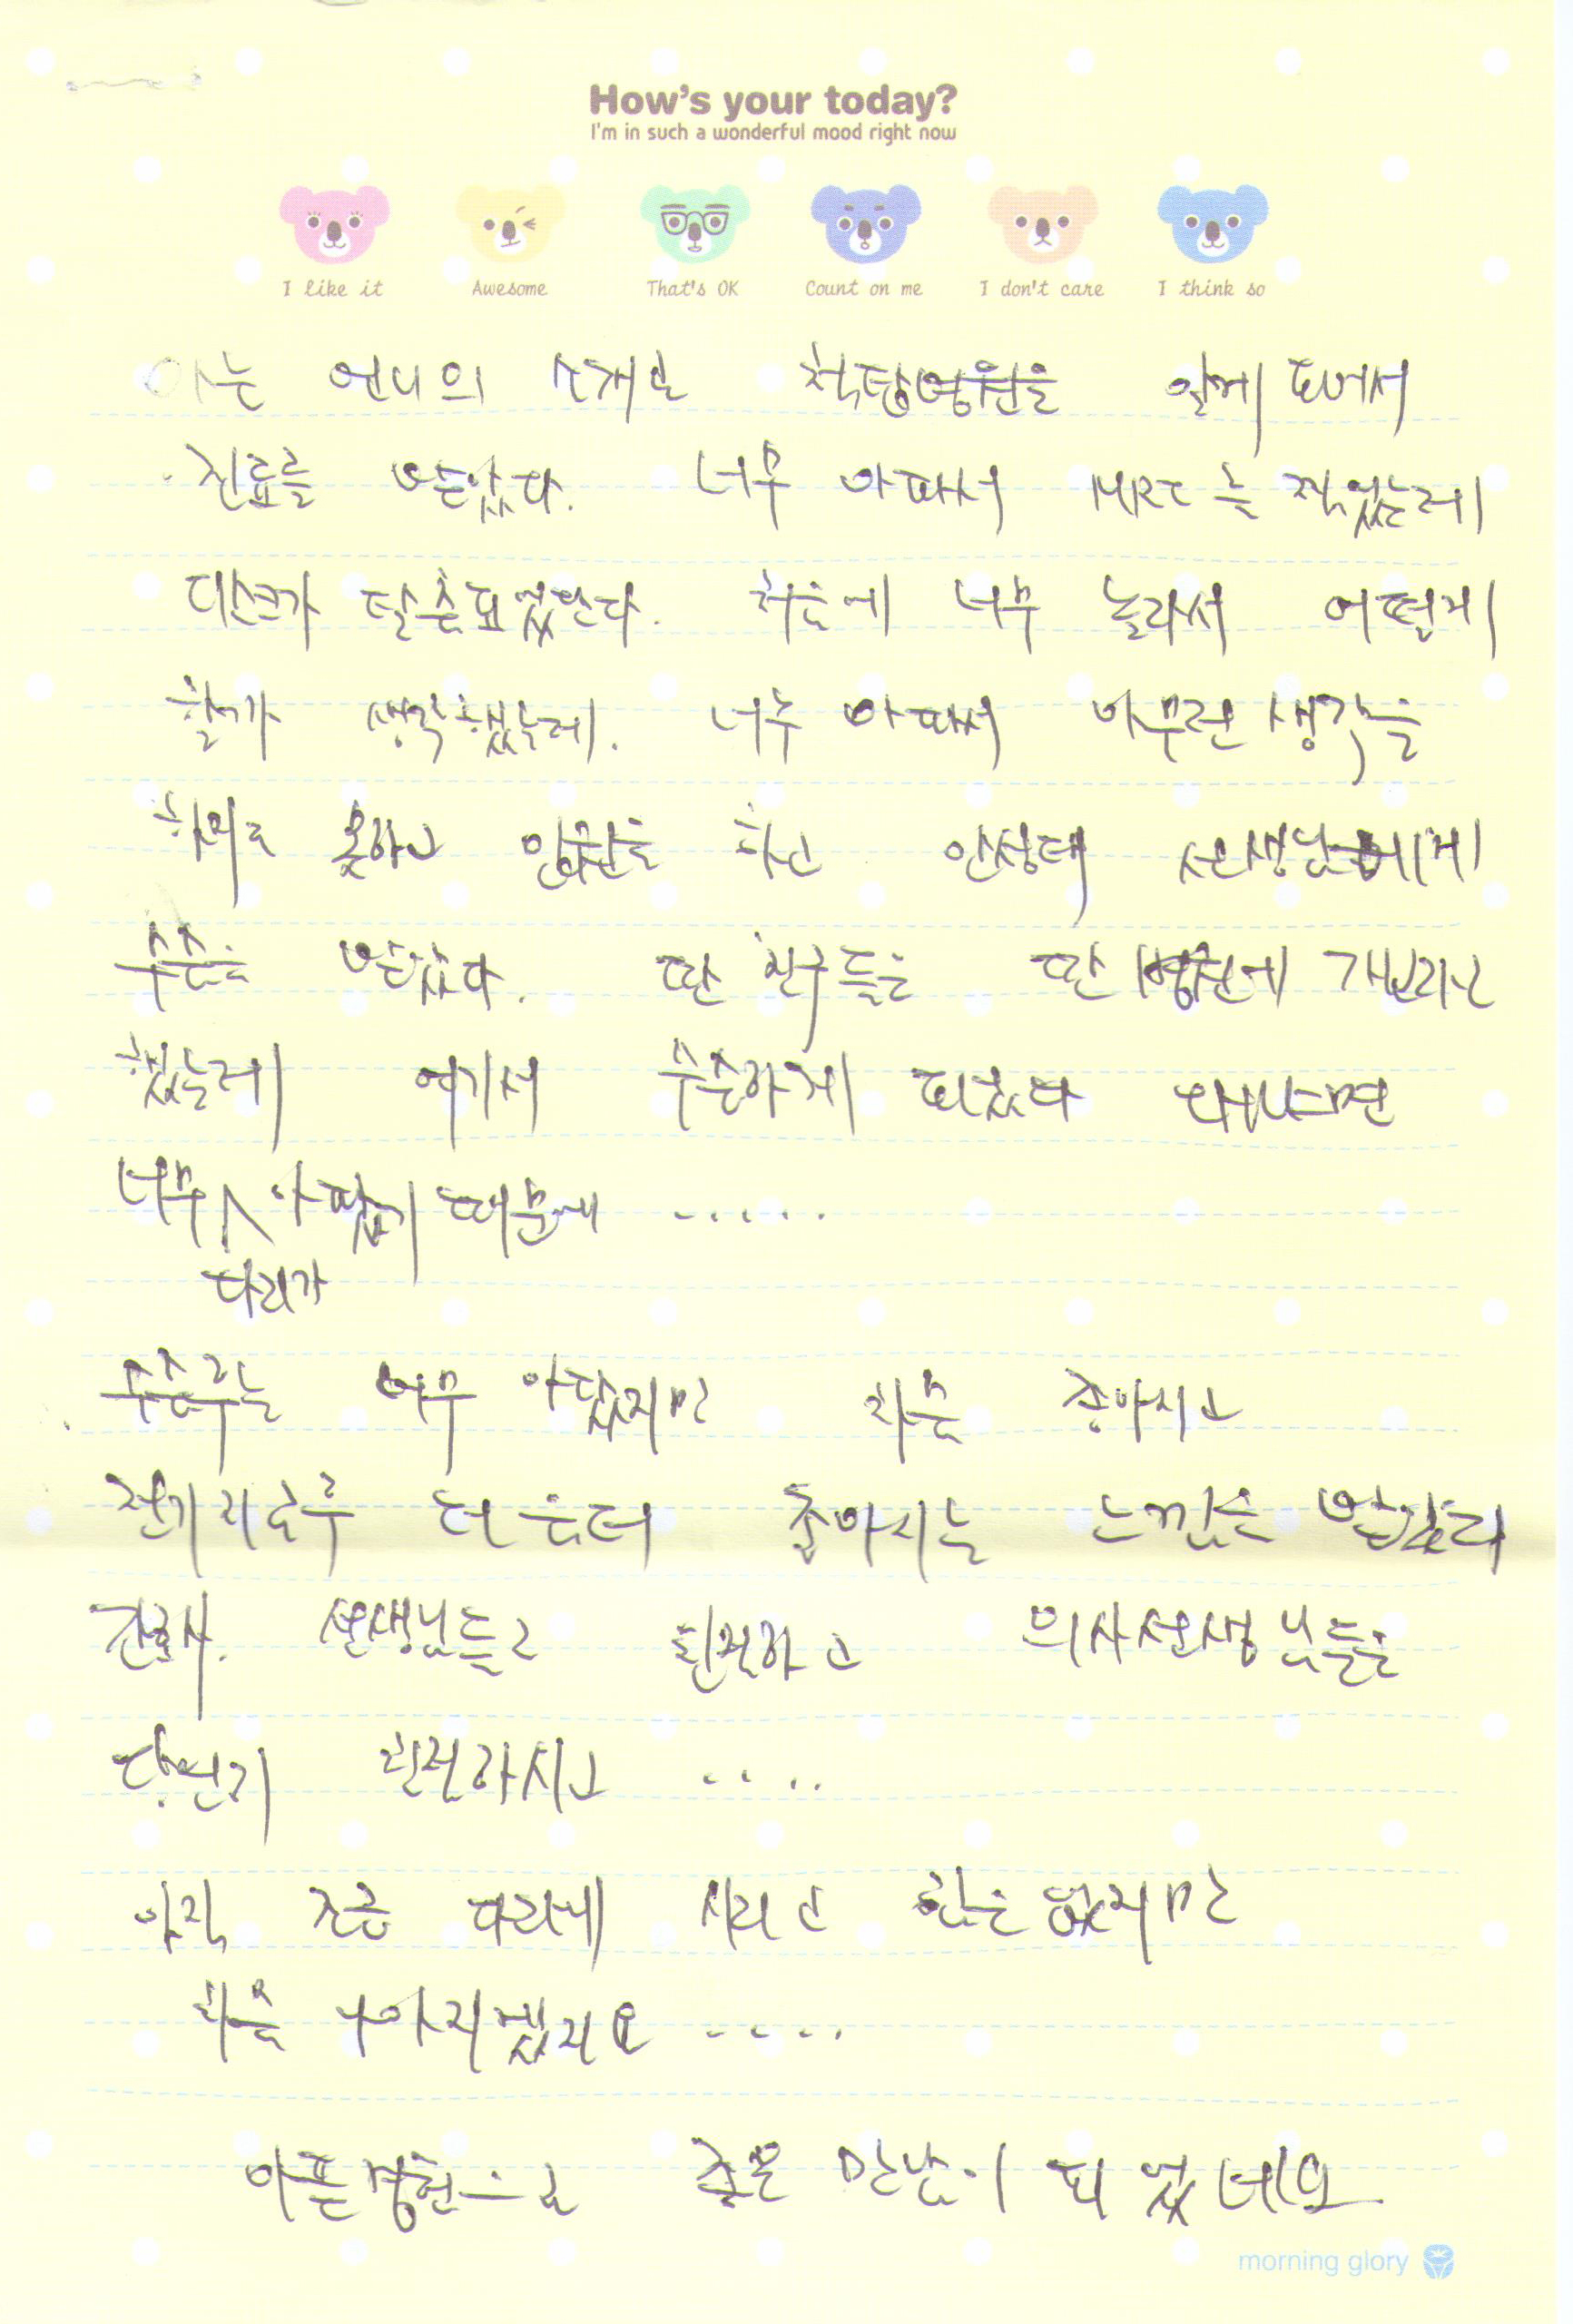 How's your today?
I'm in such a wonderful mood right now
I like it Awesome That's OK Count on me I don't care I think so
아는 언니의 소개로 척탑병원을 알게 되어서
진료를 받았다. 너무 아파서 MRI를 찍었는데
디스크가 탈출되었단다. 처음에 너무 놀라서 어떻게
할가 생각했는데. 너무 아파서 아무런 생각을
하지도 못하고 입원을 하고 안성대 선생님에게
수술을 받았다. 딴 친구들은 딴 병원에 가보라고
했는데 여기서 수술하게 되었다 왜냐면
너무 다리가 아팠기 때문에 .....
수술후는 너무 아팠지만 차츰 좋아지고
전기치료후 더욱더 좋아지는 느낌을 받았다
간호사. 선생님들도 친절하고 의사선생님들은
당연히 친절하시고 ....
아직 조금 다리에 시리고 힘은 없지만
차츰 나아지겠지요 ....
아픈경험으로 좋은 만남이 되었네요
morning glory